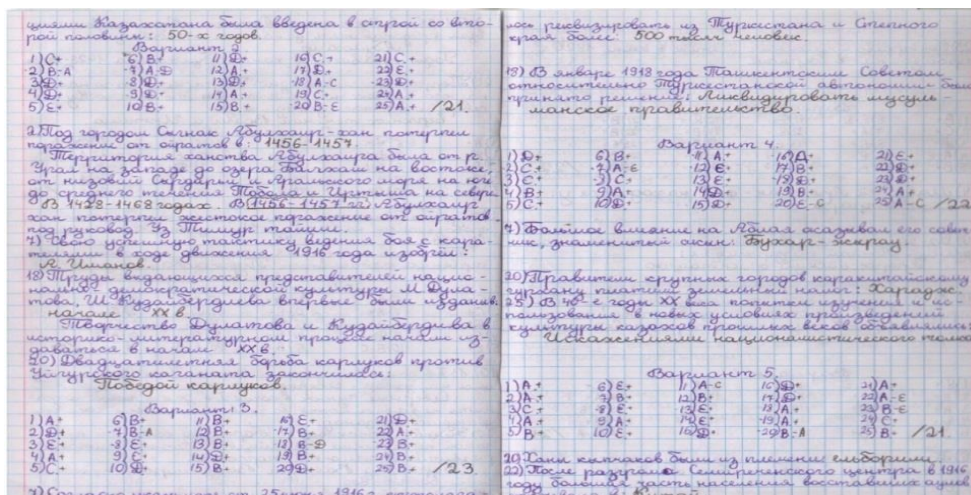 циями Казахстана была введена в строй со вто-
рой половины: 50-х годов.
Вариант 2
1) С+ 6) В+ 11) Д+ 16) С+ 21) С+
-2) В-А -7) А-Д 12) А+ 17) Д+ 22) Е+
3) Д+ 8) Д+ 13) В+ -18) А-С 23) Д+
4) Д+ 9) Д+ 14) А+ 19) С+ 24) А+
5) Е+ 10) В+ 15) В+ -20) В-Е 25) А+ /21
2) Под городом Сыгнак Абулхаир-хан потерпел
поражение от ойратов в: 1456-1457
Территория ханства Абулхаира была от р.
Урал на западе до озера Балхаш на востоке,
от низовий Сырдарьи и Аральского моря на юге
до среднего течения Тобола и Иртыша на севере
В 1428-1468 годах. В 1456-1457 гг. Абулхаир
хан потерпел жестокое поражение от ойратов
под руковод. Уз Тимур тайши.
7) Свою успешную тактику ведения боя с кара-
телями в ходе движения 1916 года изобрел:
А. Иманов.
18) Труды выдающихся представителей нацио-
нальной демократической культуры М. Дула-
това, Ш. Кудайбердиева впервые были изданы в
начале XX в.
Творчество Дулатова и Кудайбердива в
историко-литературном процессе начали из-
даваться в начале XX в.
20) Двадцатилетняя борьба карлуков против
Уйгурского каганата закончилась:
Победой карлуков.
Вариант 3.
1) А+ 6) В+ 11) В+ 16) Е+ 21) Д+
2) Д+ -7) В-А 12) В+ 17) В+ 22) А+
3) Е+ 8) Е+ 13) В+ -18) В-Д 23) В+
4) А+ 9) С+ 14) Д+ 19) В+ 24) В+
5) С+ 10) Д+ 15) В+ 20) Д+ 25) В+ /23
25 июня 1916 г.
лось реквизировать из Туркестана и Степного
края более: 500 тысяч человек.
18) В январе 1918 года Ташкентским Советом
относительно Туркестанской автономии было
принято решение: Ликвидировать мусуль-
манское правительство.
Вариант 4.
1) Д+ 6) В+ 11) А+ 16) Д+ 21) Е+
2) С+ -7) А-Е 12) Е+ 17) В+ 22) Д+
3) С+ 8) С+ 13) Е+ 18) Д+ 23) Д+
4) В+ 9) А+ 14) Д+ 19) В+ 24) А+
5) С+ 10) Д+ 15) Д+ 20) Е-С 25) А-С /22
7) Большое влияние на Аблая оказывал его совет-
ник, знаменитый акын: Бухар-жырау.
20) Правители крупных городов каракитайскому
гурхану платили земельный налог: Харадж.
25) В 40-е годы XX века попытки изучения и ис-
пользования в новых условиях произведений
культуры казахов прошлых веков объявлялись:
Искажениями националистического толка
Вариант 5.
1) А+ 6) Е+ 11) А-С 16) Д+ 21) А+
2) А+ 7) В+ 12) В+ 17) Д+ 22) А-Е
3) С+ 8) Е+ 13) Е+ 18) А+ 23) В-Е
4) А+ 9) В+ 14) Е+ 19) А+ 24) С+
5) В+ 10) Е+ 15) Д+ -20) В-А 25) В+ /21
20) Ханы кипчаков были из племени ельборили
22) После разгрома Семиреченского центра в 1916
году большая часть населения восставших аулов
Китай